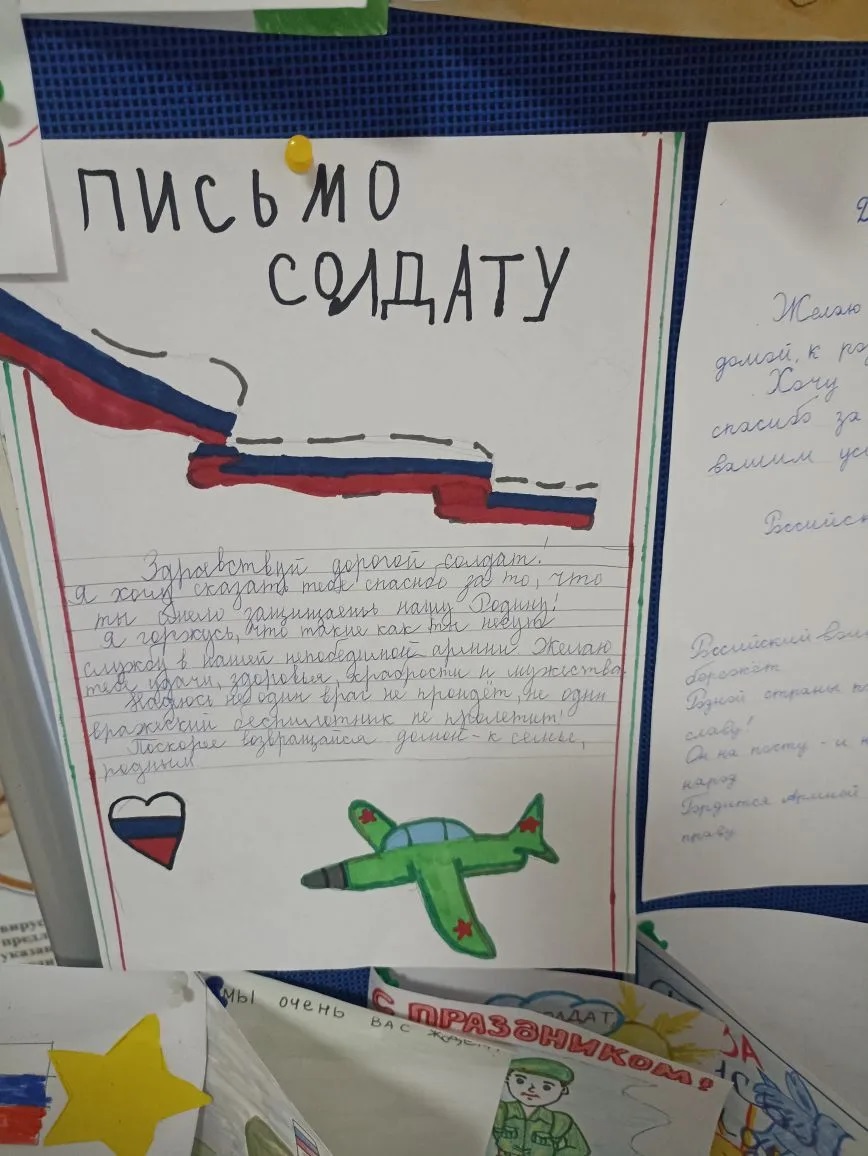 ПИСЬМО
СОЛДАТУ
Здравствуй дорогой солдат!
Я хочу сказать тебе спасибо за то, что
ты смело защищаешь нашу Родину!
Я горжусь, что такие как ты несут
службу в нашей непобедимой армии Желаю
тебе удачи, здоровья, храбрости и мужества
Надеюсь не один враг не пройдёт, не один
вражеский беспилотник не пролетит!
Поскорее возвращайся домой - к семье,
родным
Желаю
домой, к ро
Хочу
спасибо за
вашим ус
Российск
Российский вои
бережёт
Родной страны по
славу!
Он на посту - и н
народ
Гордится Армией
праву
вирус
предл
указан
МЫ ОЧЕНЬ ВАС ЖДЕМ!
С ПРАЗДНИКОМ!
ЛДАТ
ЗА